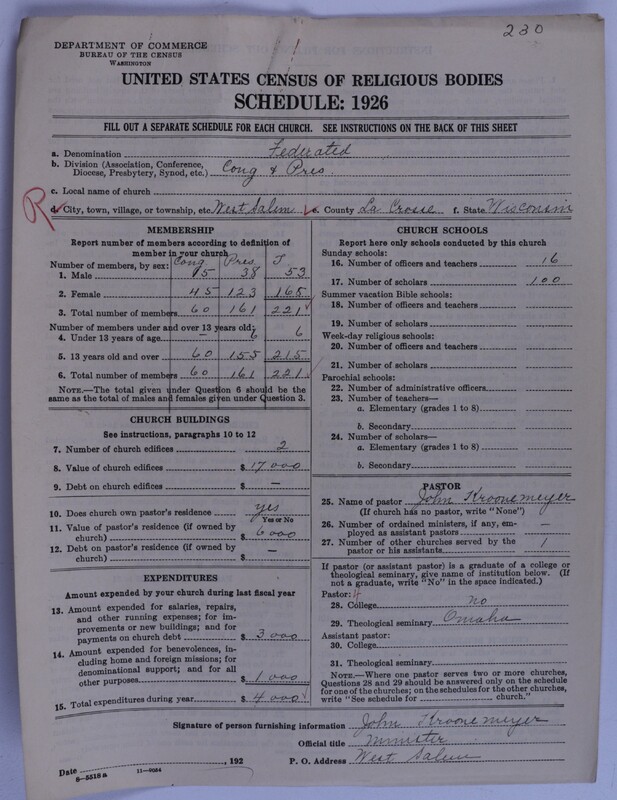 230
DEPARTMENT OF COMMERCE
BUREAU OF THE CENSUS
WASHINGTON
UNITED STATES CENSUS OF RELIGIOUS BODIES
SCHEDULE: 1926
FILL OUT A SEPARATE SCHEDULE FOR EACH CHURCH. SEE INSTRUCTIONS ON THE BACK OF THIS SHEET
a. Denomination Federated
b. Division (Association, Conference, Diocese, Presbytery, Synod, etc.) Cong & Pres.
c. Local name of church
R
d. City, town, village, or township, etc. West Salem e. County La Crosse f. State Wisconsin
MEMBERSHIP
Report number of members according to definition of
member in your church
Number of members, by sex: Cong Pres. T
1. Male 15 38 53
2. Female 45 123 168
3. Total number of members 60 161 221
Number of members under and over 13 years old:
4. Under 13 years of age — 6 6
5. 13 years old and over 60 155 215
6. Total number of members 60 161 221
NOTE.—The total given under Question 6 should be the
same as the total of males and females given under Question 3.
CHURCH BUILDINGS
See instructions, paragraphs 10 to 12
7. Number of church edifices 2
8. Value of church edifices $ 17000
9. Debt on church edifices $ —
10. Does church own pastor's residence yes
Yes or No
11. Value of pastor's residence (if owned by
church) $ 6000
12. Debt on pastor's residence (if owned by
church) $ —
EXPENDITURES
Amount expended by your church during last fiscal year
13. Amount expended for salaries, repairs,
and other running expenses; for im-
provements or new buildings; and for
payments on church debt $ 3000
14. Amount expended for benevolences, in-
cluding home and foreign missions; for
denominational support; and for all
other purposes $ 1000
15. Total expenditures during year $ 4000
CHURCH SCHOOLS
Report here only schools conducted by this church
Sunday schools:
16. Number of officers and teachers 16
17. Number of scholars 100
Summer vacation Bible schools:
18. Number of officers and teachers
19. Number of scholars
Week-day religious schools:
20. Number of officers and teachers
21. Number of scholars
Parochial schools:
22. Number of administrative officers
23. Number of teachers—
a. Elementary (grades 1 to 8)
b. Secondary
24. Number of scholars—
a. Elementary (grades 1 to 8)
b. Secondary
PASTOR
25. Name of pastor John Kroonemeyer
(If church has no pastor, write "None")
26. Number of ordained ministers, if any, em-
ployed as assistant pastors —
27. Number of other churches served by the
pastor or his assistants 1
If pastor (or assistant pastor) is a graduate of a college or
theological seminary, give name of institution below. (If
not a graduate, write "No" in the space indicated.)
Pastor: 4
28. College no
29. Theological seminary Omaha
Assistant pastor:
30. College
31. Theological seminary
NOTE.—Where one pastor serves two or more churches,
Questions 28 and 29 should be answered only on the schedule
for one of the churches; on the schedules for the other churches,
write "See schedule for church."
Signature of person furnishing information John Kroonemeyer
Official title Minister
Date , 192 P. O. Address West Salem
8—5518 a 11—9034